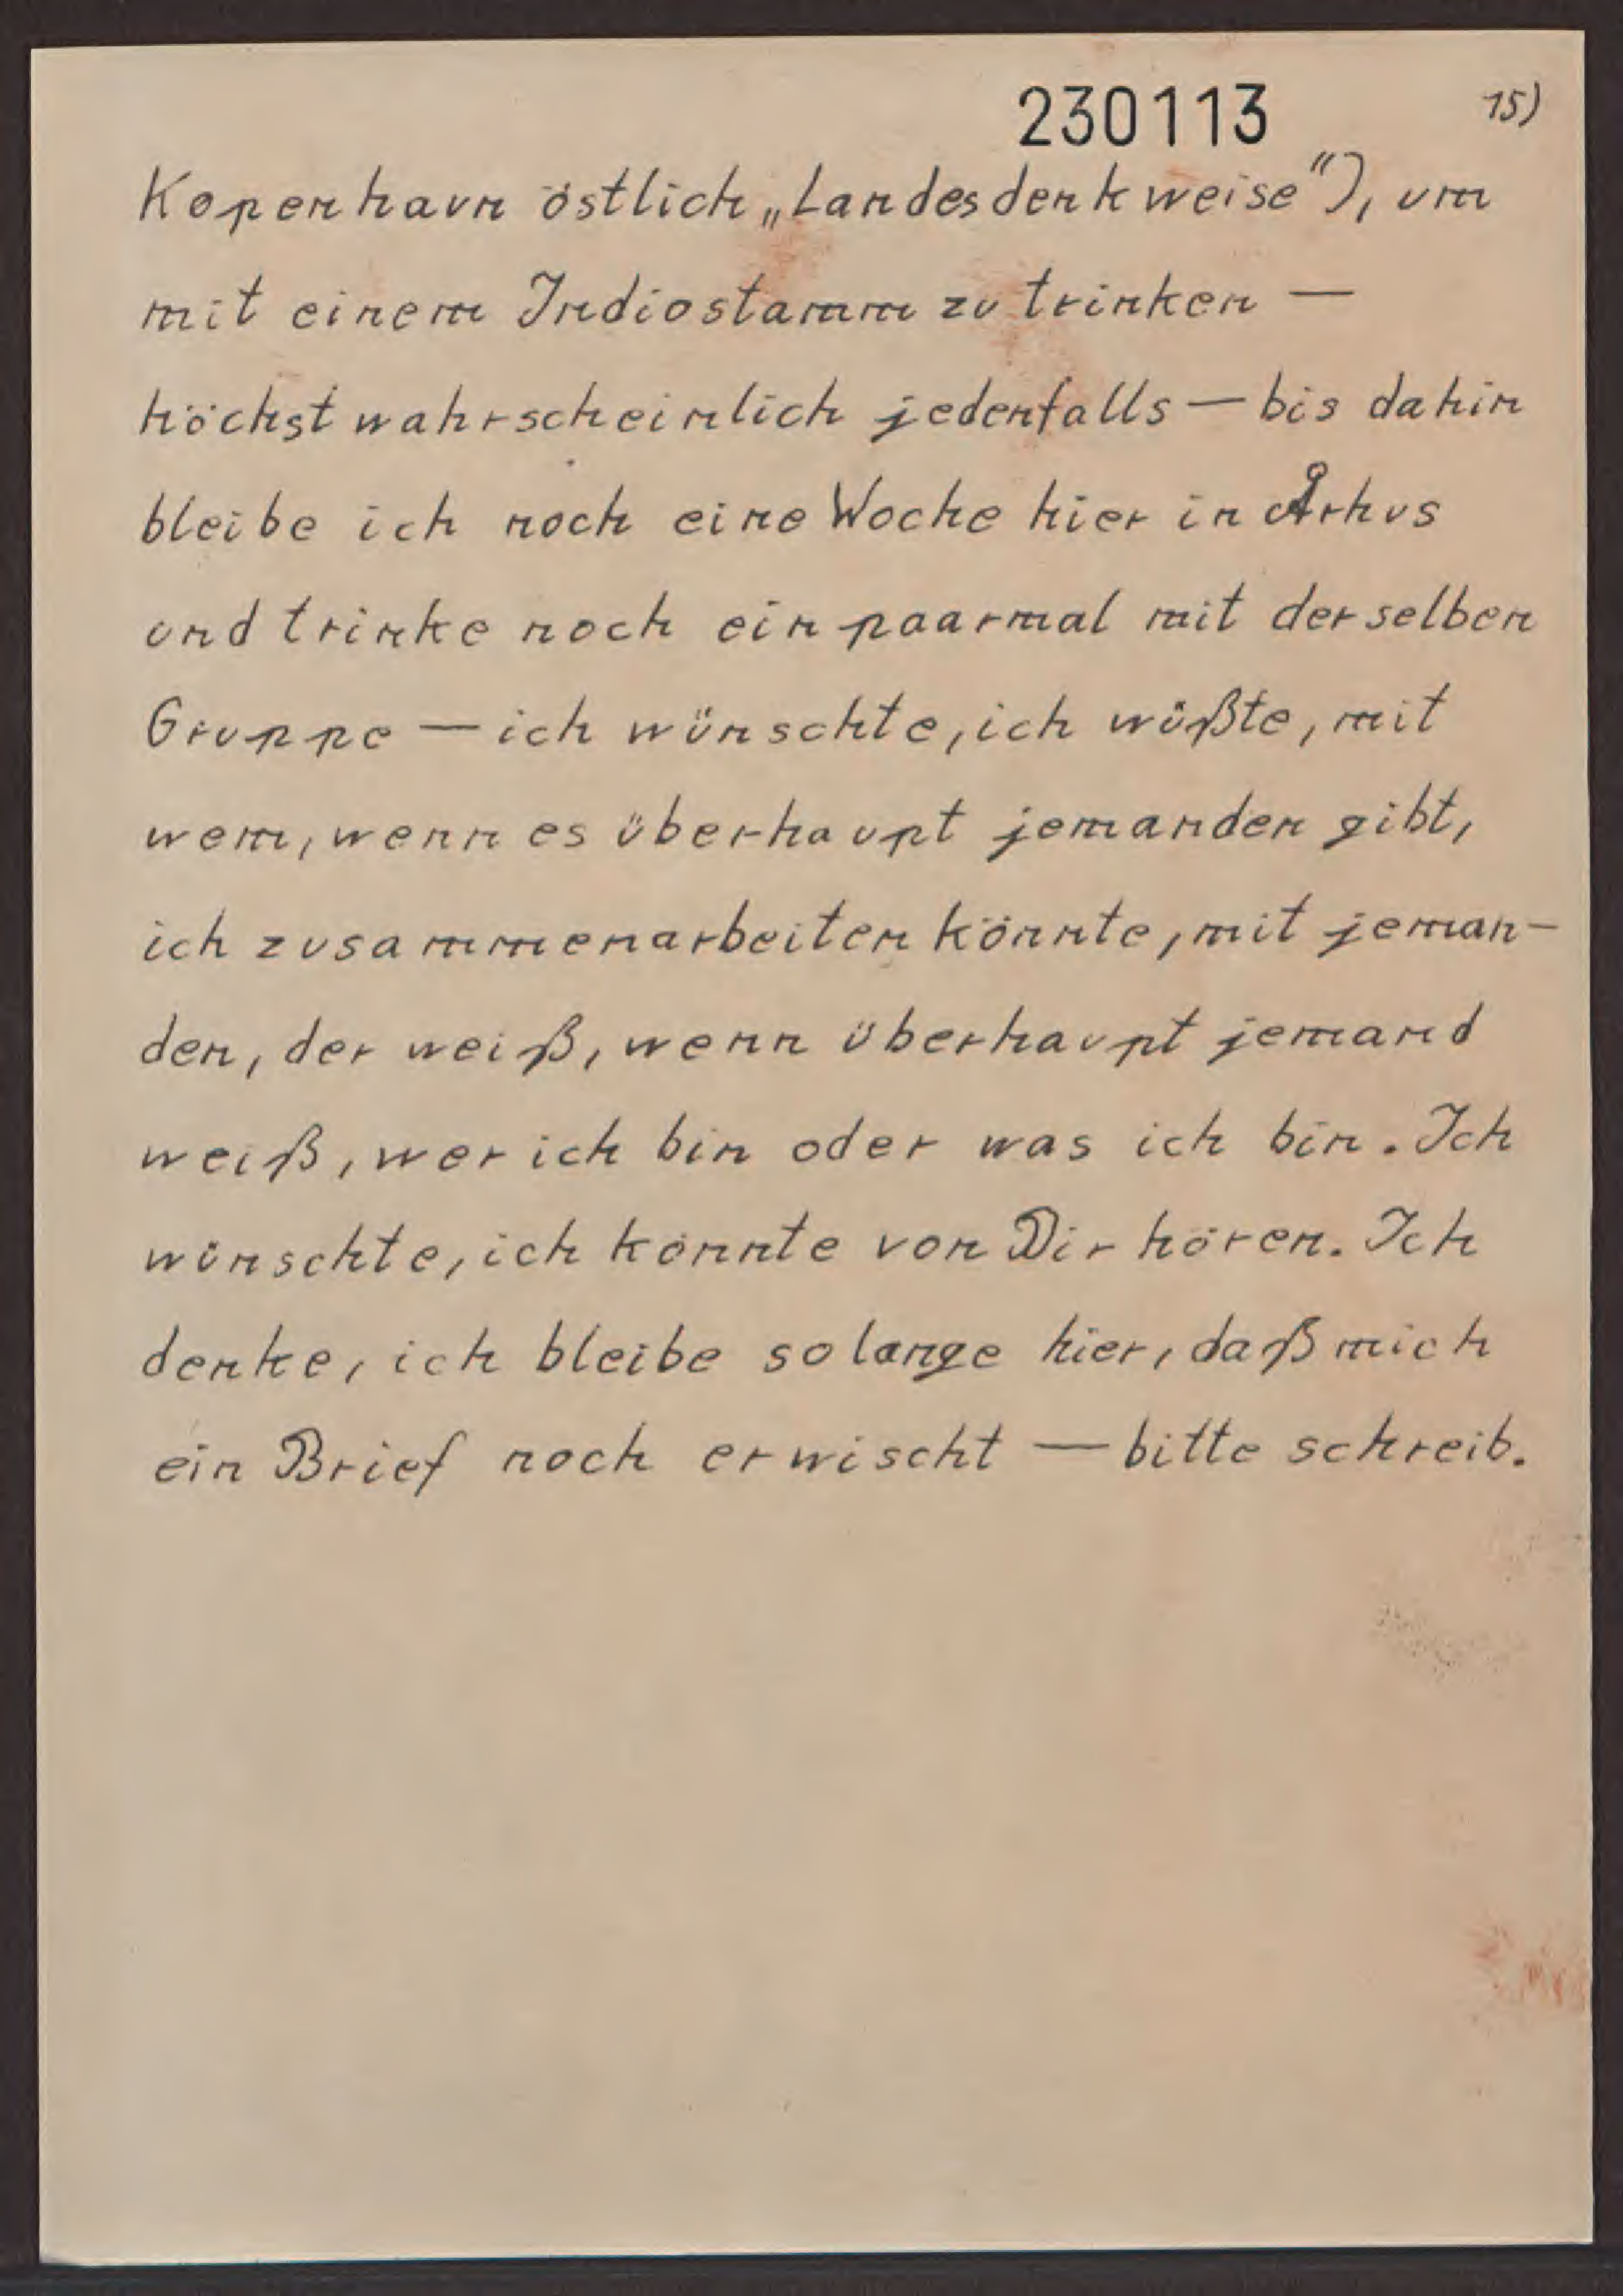 230113
15)
Kopenhavn östlich „Landesdenkweise“), um
mit einem Indiostamm zu trinken —
höchstwahrscheinlich jedenfalls — bis dahin
bleibe ich noch eine Woche hier in Århus
und trinke noch ein paarmal mit derselben
Gruppe — ich wünschte, ich wüßte, mit
wem, wenn es überhaupt jemanden gibt,
ich zusammenarbeiten könnte, mit jeman-
den, der weiß, wenn überhaupt jemand
weiß, wer ich bin oder was ich bin. Ich
wünschte, ich könnte von Dir hören. Ich
denke, ich bleibe so lange hier, daß mich
ein Brief noch erwischt — bitte schreib.